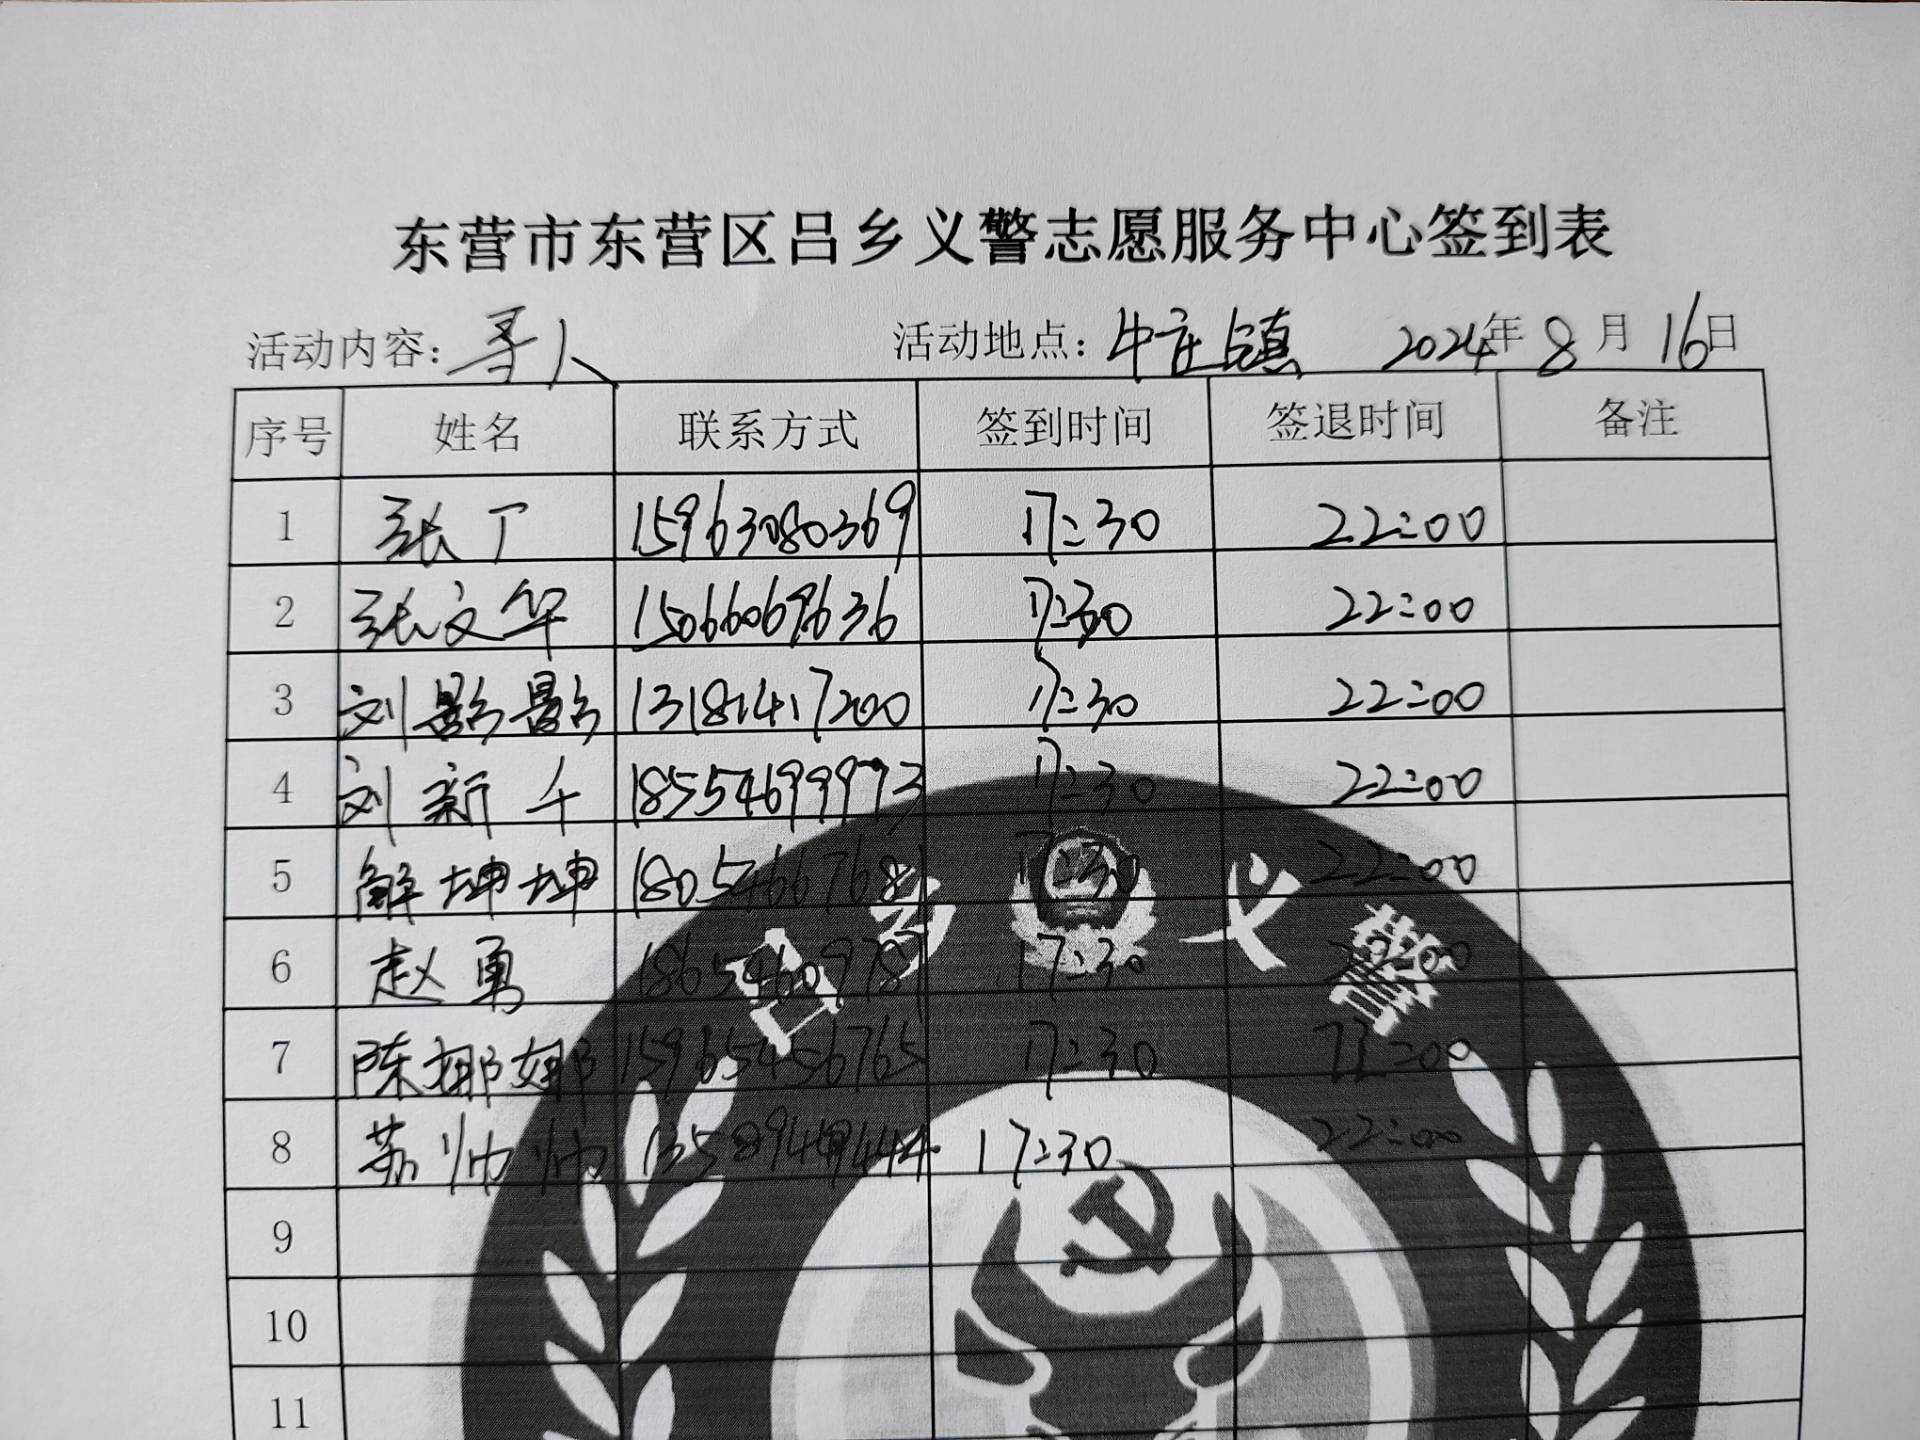 东营市东营区吕乡义警志愿服务中心签到表
活动内容：寻人 活动地点：牛庄镇 2024年8月16日
序号 姓名 联系方式 签到时间 签退时间 备注
1 张丁 15963080369 17:30 22:00
2 张文华 15066069636 17:30 22:00
3 刘影影 13181417200 17:30 22:00
4 刘新千 18554699973 17:30 22:00
5 解坤坤 18054667681 17:30 22:00
6 赵勇 18654609787 17:30 22:00
7 陈娜娜 15965456765 17:30 22:00
8 苏帅帅 17:30 22:00
9
10
11
吕乡义警